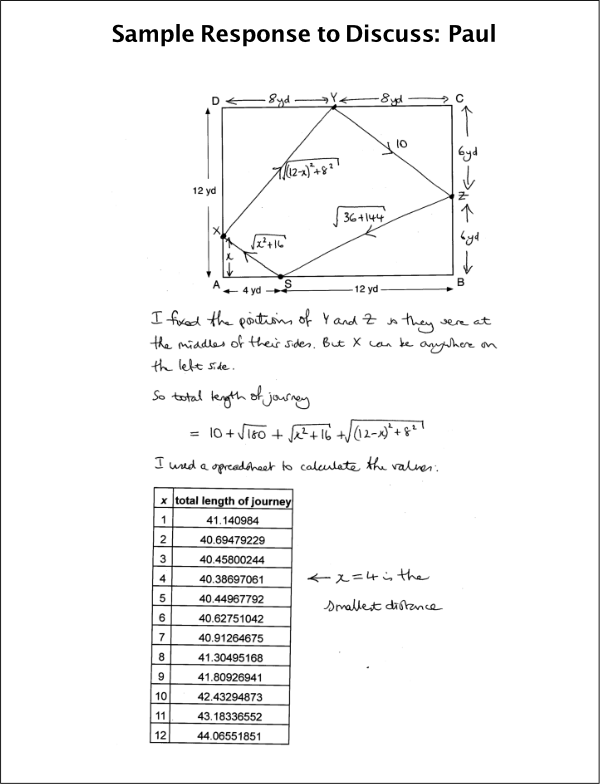 Sample Response to Discuss: Paul
D 8yd Y 8yd C
10
√(12-x)²+8²
6yd
12 yd
Z
√36+144
X
√x²+16
6yd
x
A 4 yd S 12 yd B
I fixed the positions of Y and Z so they were at
the middles of their sides. But X can be anywhere on
the left side.
So total length of journey
= 10 + √180 + √x²+16 + √(12-x)²+8²
I used a spreadsheet to calculate the values:
x total length of journey
1 41.140984
2 40.69479229
3 40.45800244
4 40.38697061 ← x = 4 is the
smallest distance
5 40.44967792
6 40.62751042
7 40.91264675
8 41.30495168
9 41.80926941
10 42.43294873
11 43.18336552
12 44.06551851